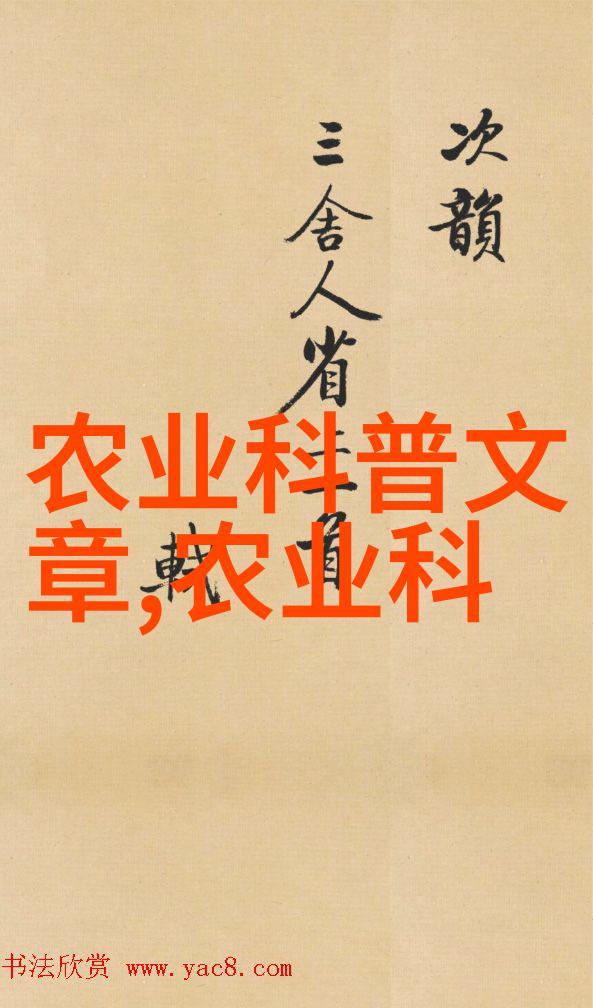 次韻
三舍人省上一首
軾
农业科普文
章,农业科
书法欣赏 www.yac8.com